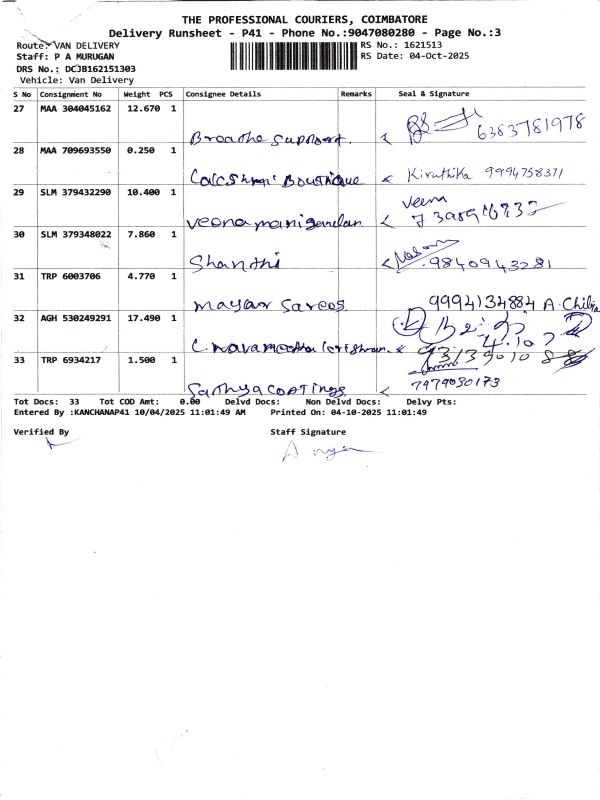 THE PROFESSIONAL COURIERS, COIMBATORE
Delivery Runsheet - P41 - Phone No.:9047080280 - Page No.:3
Route: VAN DELIVERY
RS No.: 1621513
Staff: P A MURUGAN
RS Date: 04-Oct-2025
DRS No.: DCJB162151303
Vehicle: Van Delivery
S No Consignment No Weight PCS Consignee Details Remarks Seal & Signature
27 MAA 304045162 12.670 1
Breathe support. 6383781978
28 MAA 709693550 0.250 1
Boutique Kiruthika 9994758371
29 SLM 379432290 10.400 1
veena manigandan. veena
30 SLM 379348022 7.860 1
Shanthi 9840943281
31 TRP 6003706 4.770 1
mayaar sarees. 9994134884 A.
32 AGH 530249291 17.490 1
33 TRP 6934217 1.500 1
Sathya coatings. 7979030173
Tot Docs: 33 Tot COD Amt: 0.00 Delvd Docs: Non Delvd Docs: Delvy Pts:
Entered By :KANCHANAP41 10/04/2025 11:01:49 AM Printed On: 04-10-2025 11:01:49
Verified By Staff Signature